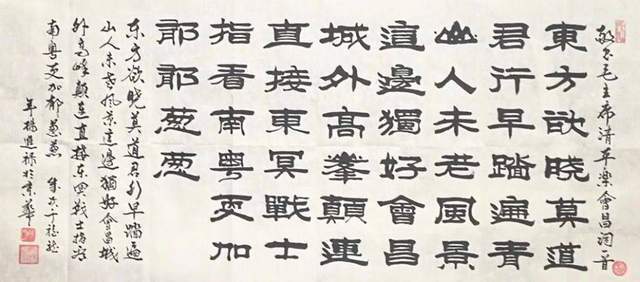 敬書毛主席清平樂會昌詞一首
東方欲曉莫道
君行早踏遍青
山人未老風景
這邊獨好會昌
城外高峯顛連
直接東冥戰士
指看南粤更加
郁郁葱葱
东方欲晓莫道君行早踏遍
山人未老風景這邊獨好會昌城
外高峰顛連直接东冥戰士指看
南粤更加郁葱葱
年楊進祿於京華